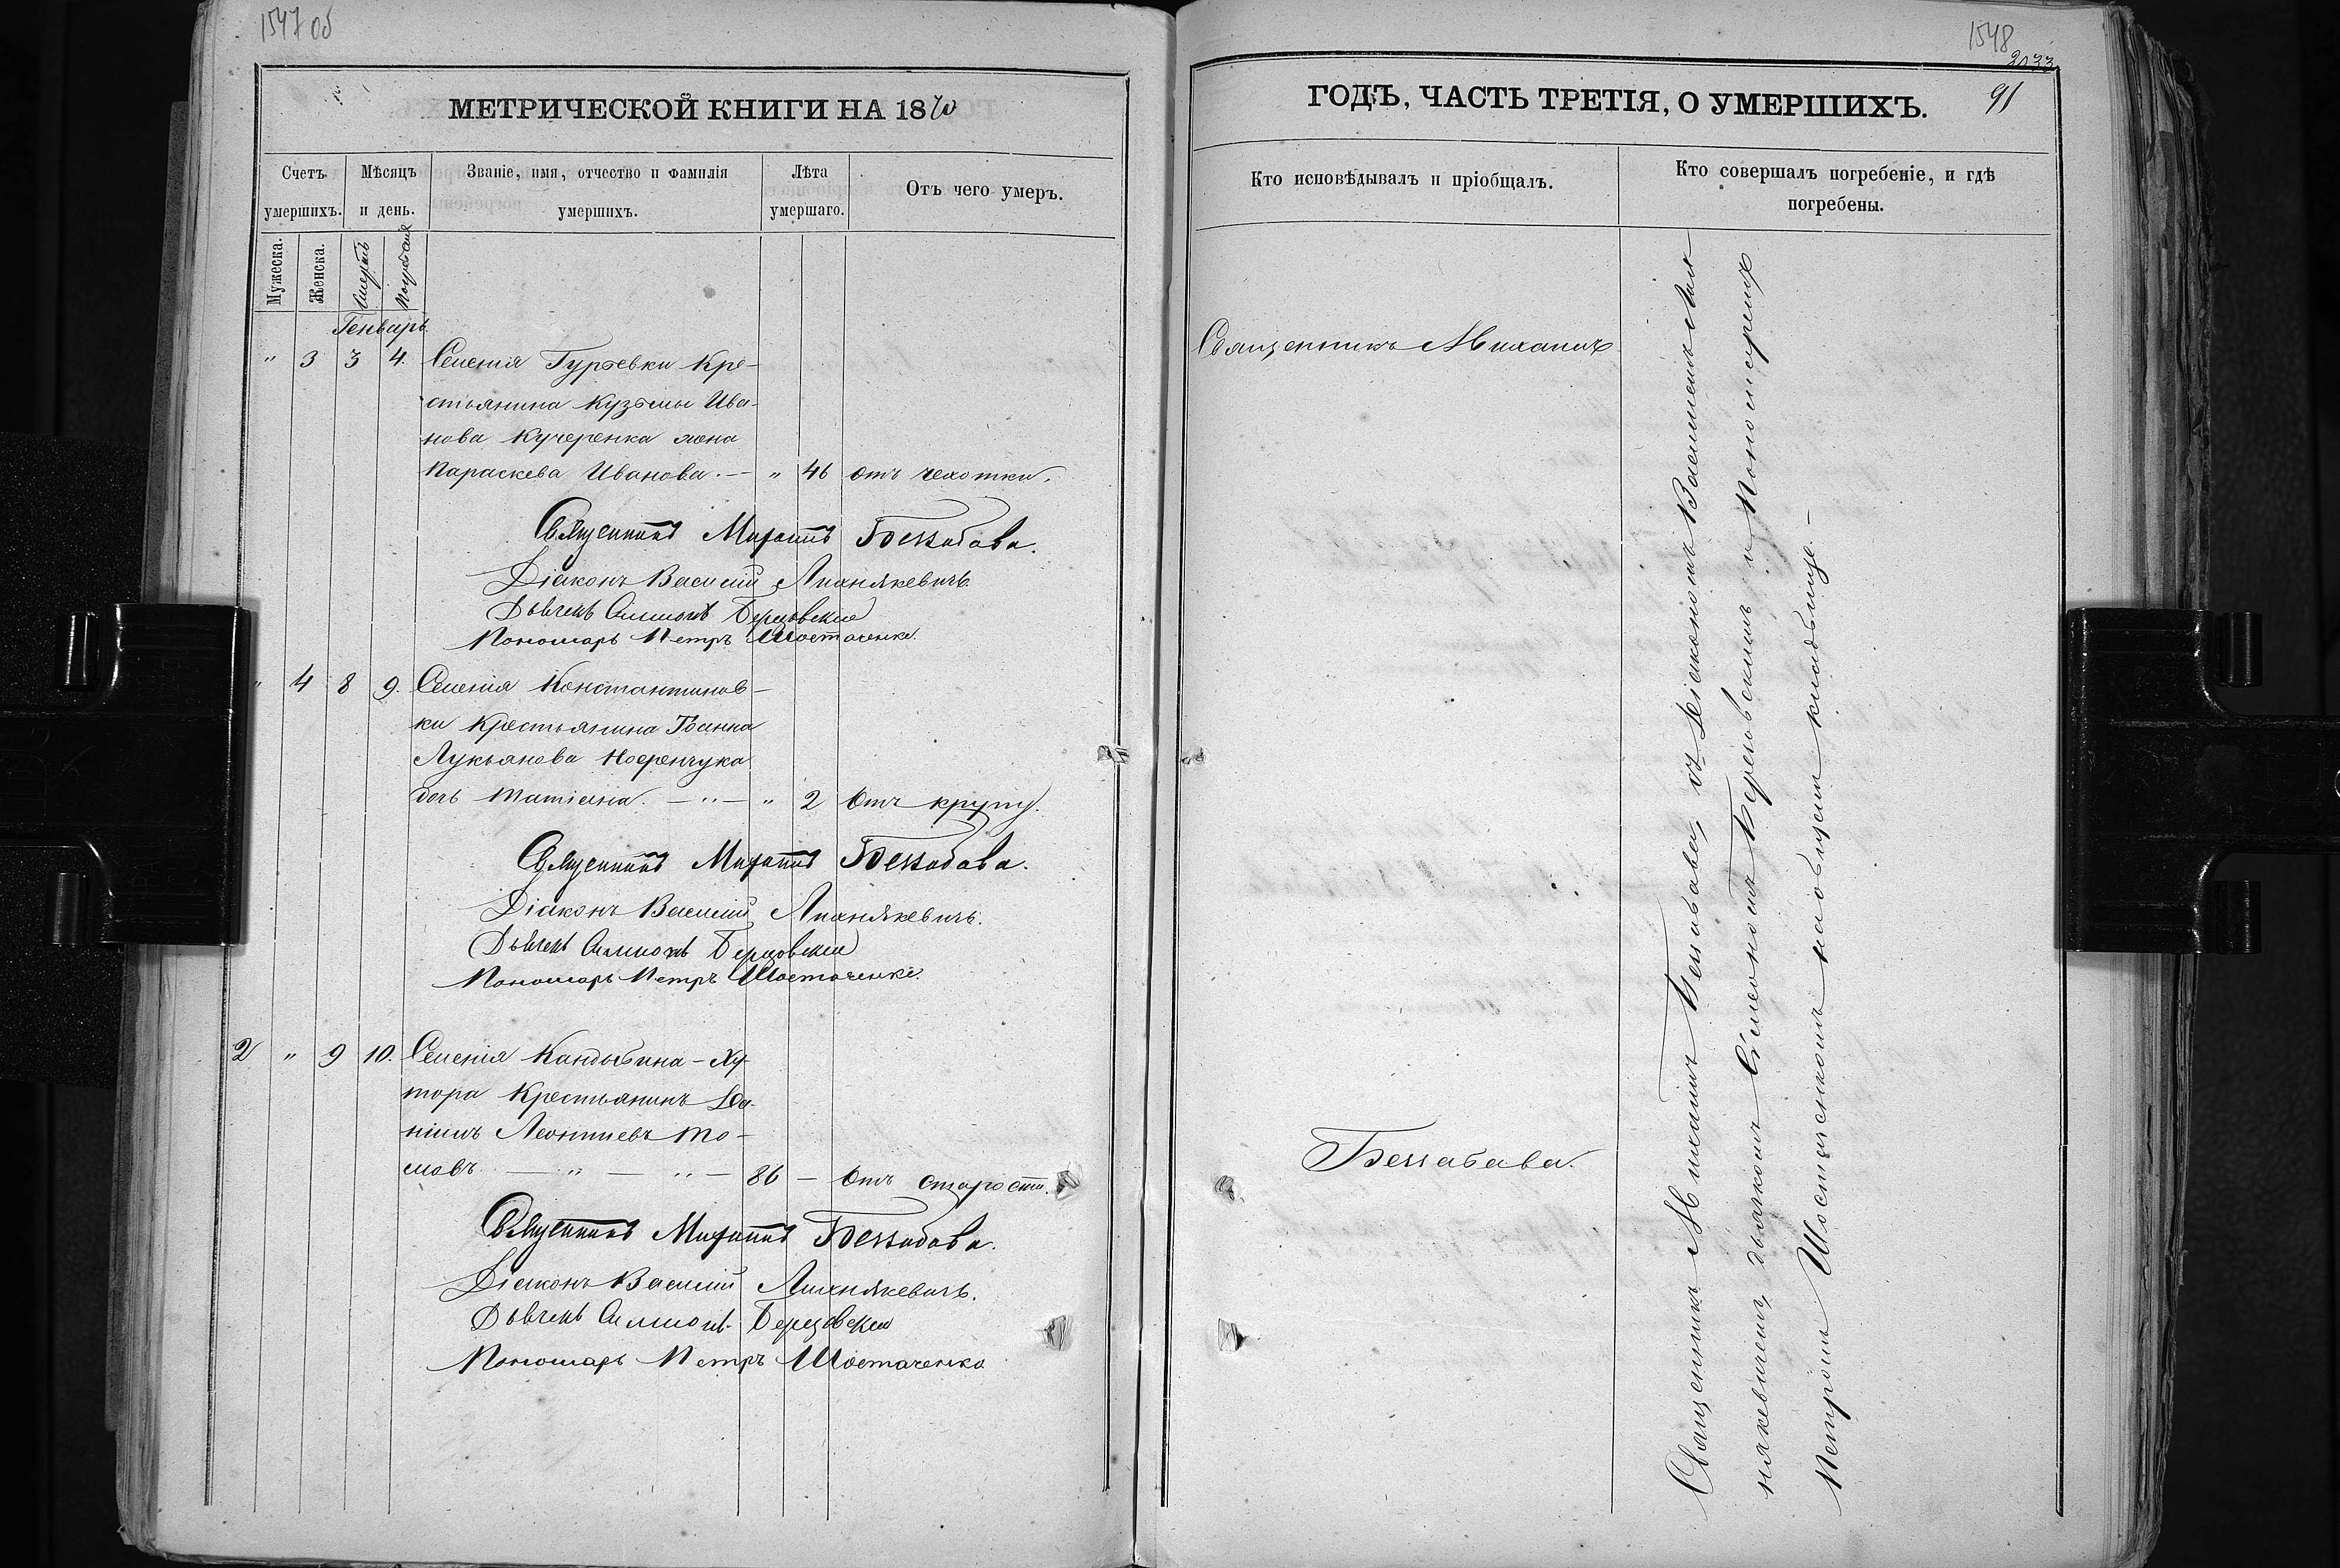 1547 об
МЕТРИЧЕСКОЙ КНИГИ НА 1870
Счетъ умершихъ.
Мѣсяцъ и день.
Званіе, имя, отчество и фамилія умершихъ.
Лѣта умершаго.
Отъ чего умеръ.
Мужеска.
Женска.
Смерть
Погребенія
Генварь.
" 3 3 4. Селенія Гурьевки Кре-
стьянина Кузьмы Ива-
нова Кучеренка жена
Параскева Иванова. — " 46 Отъ чехотки.
Священникъ Михаилъ Беззабава.
Діаконъ Василій Лихнякевичъ.
Дьячекъ Симеонъ Березовскій
Пономарь Петръ Шостаченко.
" 4 8 9. Селенія Константинов-
ки Крестьянина Іоанна
Лукьянова
дочь Татіана. — " — " 2 Отъ крупу.
Священникъ Михаилъ Беззабава.
Діаконъ Василій Лихнякевичъ.
Дьячекъ Симеонъ Березовскій
Пономарь Петръ Шостаченко.
2 " 9 10. Селенія Кандыбина-Ху-
тора Крестьянинъ Да-
ніилъ Леонтіевъ То-
мовъ. — " — " — 86 — Отъ старости.
Священникъ Михаилъ Беззабава.
Діаконъ Василій Лихнякевичъ.
Дьячекъ Симеонъ Березовскій
Пономарь Петръ Шостаченко
1548
2033
91
ГОДЪ, ЧАСТЬ ТРЕТІЯ, О УМЕРШИХЪ.
Кто исповѣдывалъ и пріобщалъ.
Кто совершалъ погребеніе, и гдѣ погребены.
Священникъ Михаилъ
Беззабава.
Священникъ Михаилъ Беззабава, съ Діакономъ Василіемъ Лих
някевичемъ, дьячкомъ Симеономъ Березовскимъ и Пономаремъ
Петромъ Шостаченкомъ на общемъ кладбищѣ.—